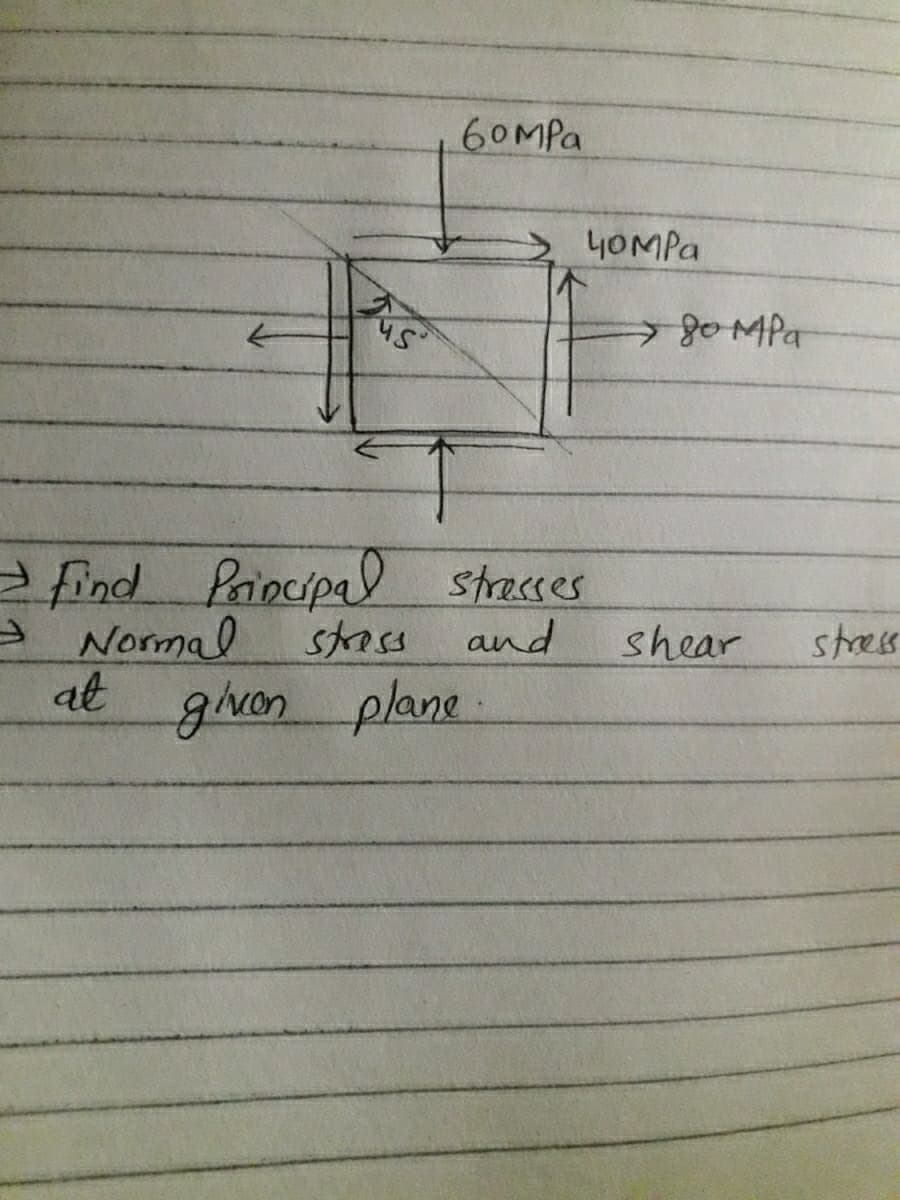 60MPa
40MPa
45°
80 MPa
→ find Principal stresses
→ Normal stress and shear stress
at given plane.